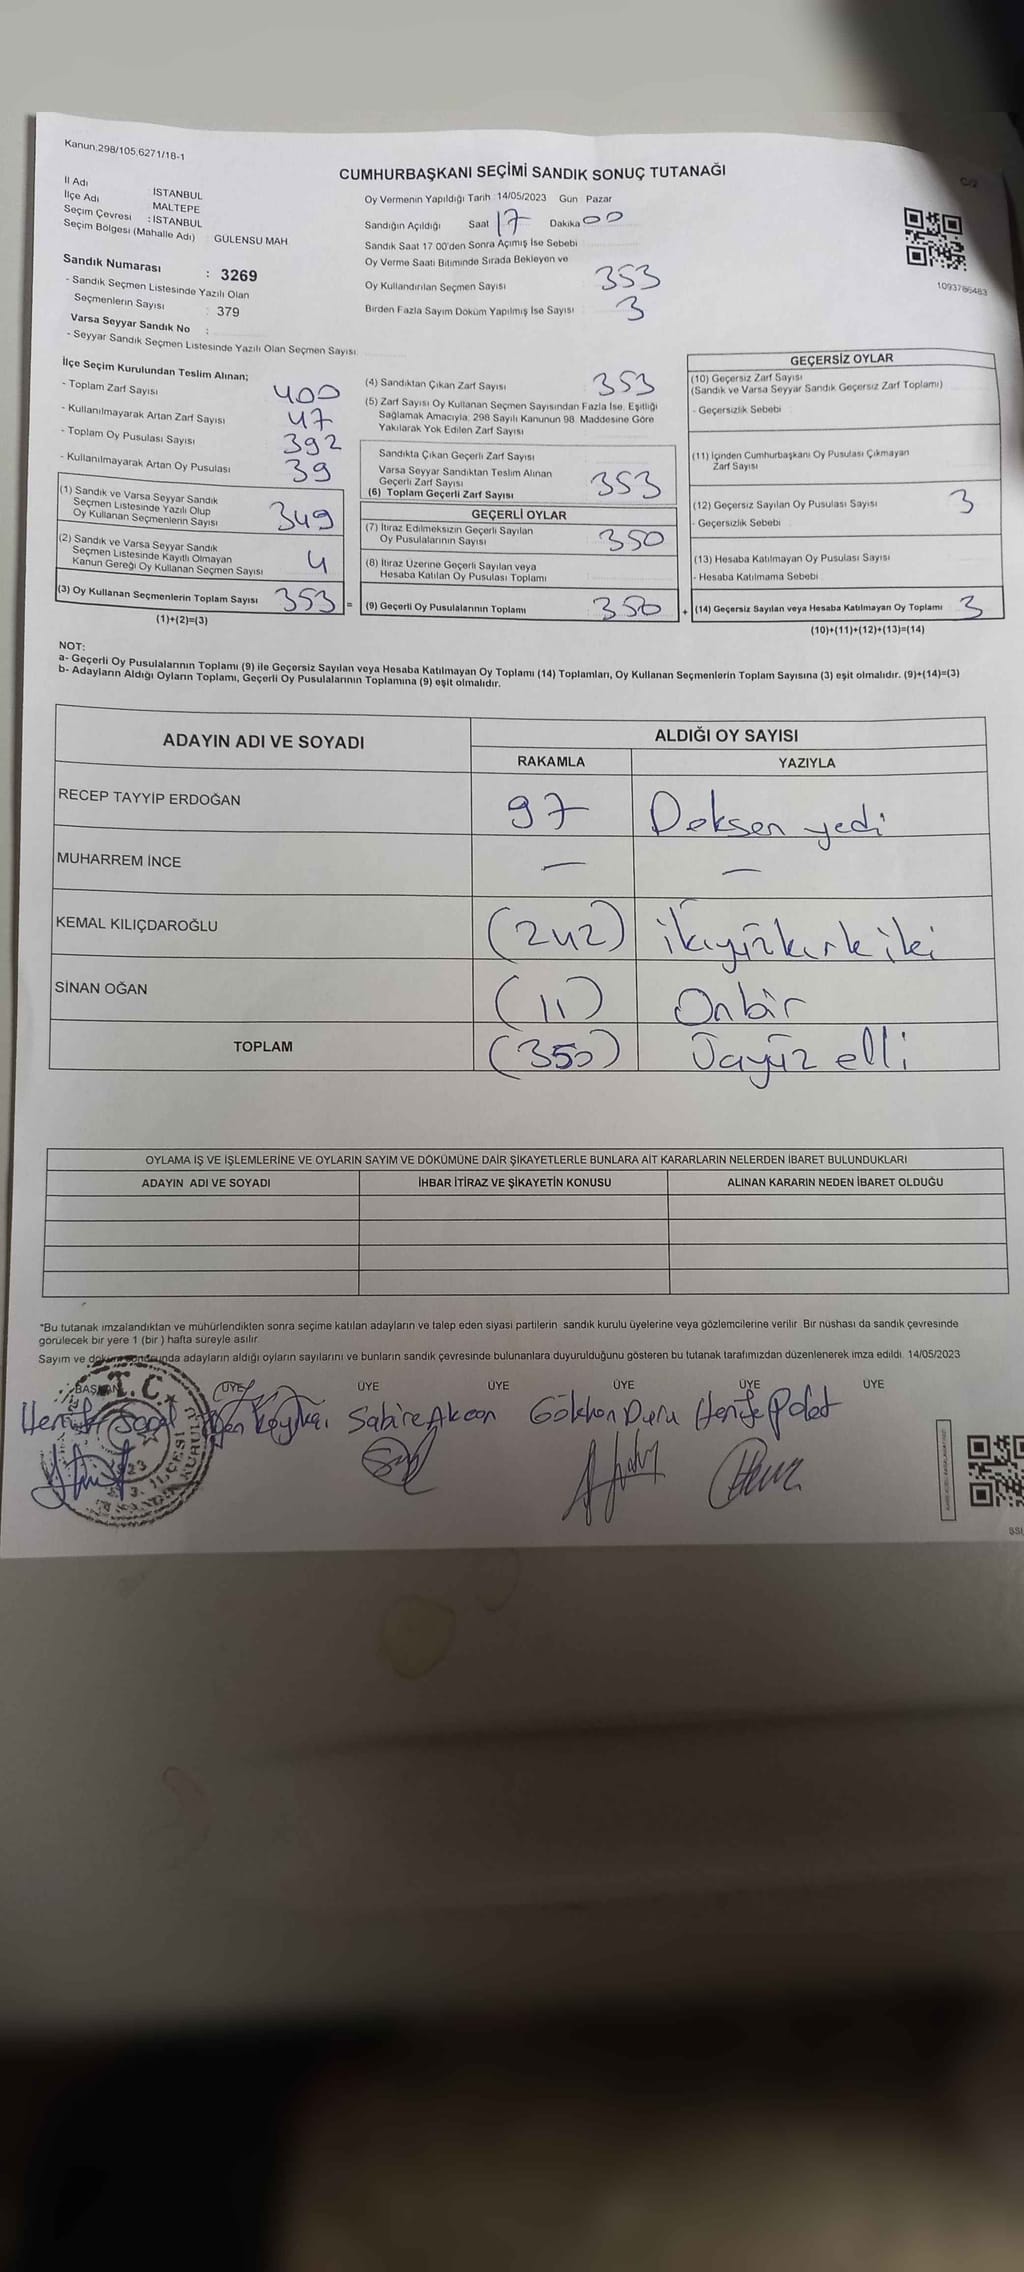 Kanun:298/105,6271/18-1
C/2
CUMHURBAŞKANI SEÇİMİ SANDIK SONUÇ TUTANAĞI
İl Adı İSTANBUL
İlçe Adı MALTEPE
Seçim Çevresi : İSTANBUL
Seçim Bölgesi (Mahalle Adı) GÜLENSU MAH
Oy Vermenin Yapıldığı Tarih 14/05/2023 Gün Pazar
Sandığın Açıldığı Saat 17 Dakika 00
Sandık Saat 17 00'den Sonra Açımış İse Sebebi
Oy Verme Saati Bitiminde Sırada Bekleyen ve
Oy Kullandırılan Seçmen Sayısı 353
Birden Fazla Sayım Döküm Yapılmış İse Sayısı 3
1093786483
Sandık Numarası : 3269
- Sandık Seçmen Listesinde Yazılı Olan
Seçmenlerin Sayısı 379
Varsa Seyyar Sandık No :
- Seyyar Sandık Seçmen Listesinde Yazılı Olan Seçmen Sayısı
İlçe Seçim Kurulundan Teslim Alınan;
- Toplam Zarf Sayısı 400
- Kullanılmayarak Artan Zarf Sayısı 47
- Toplam Oy Pusulası Sayısı 392
- Kullanılmayarak Artan Oy Pusulası 39
(1) Sandık ve Varsa Seyyar Sandık
Seçmen Listesinde Yazılı Olup
Oy Kullanan Seçmenlerin Sayısı 349
(2) Sandık ve Varsa Seyyar Sandık
Seçmen Listesinde Kayıtlı Olmayan
Kanun Gereği Oy Kullanan Seçmen Sayısı 4
(3) Oy Kullanan Seçmenlerin Toplam Sayısı 353 =
(1)+(2)=(3)
(4) Sandıktan Çıkan Zarf Sayısı 353
(5) Zarf Sayısı Oy Kullanan Seçmen Sayısından Fazla İse, Eşitliği
Sağlamak Amacıyla, 298 Sayılı Kanunun 98. Maddesine Göre
Yakılarak Yok Edilen Zarf Sayısı
Sandıkta Çıkan Geçerli Zarf Sayısı
Varsa Seyyar Sandıktan Teslim Alınan
Geçerli Zarf Sayısı
(6) Toplam Geçerli Zarf Sayısı 353
GEÇERLİ OYLAR
(7) İtiraz Edilmeksizin Geçerli Sayılan
Oy Pusulalarının Sayısı 350
(8) İtiraz Üzerine Geçerli Sayılan veya
Hesaba Katılan Oy Pusulası Toplamı
(9) Geçerli Oy Pusulalarının Toplamı 350 +
GEÇERSİZ OYLAR
(10) Geçersiz Zarf Sayısı
(Sandık ve Varsa Seyyar Sandık Geçersiz Zarf Toplamı)
- Geçersizlik Sebebi
(11) İçinden Cumhurbaşkanı Oy Pusulası Çıkmayan
Zarf Sayısı
(12) Geçersiz Sayılan Oy Pusulası Sayısı 3
- Geçersizlik Sebebi
(13) Hesaba Katılmayan Oy Pusulası Sayısı
- Hesaba Katılmama Sebebi
(14) Geçersiz Sayılan veya Hesaba Katılmayan Oy Toplamı 3
(10)+(11)+(12)+(13)=(14)
NOT:
a- Geçerli Oy Pusulalarının Toplamı (9) ile Geçersiz Sayılan veya Hesaba Katılmayan Oy Toplamı (14) Toplamları, Oy Kullanan Seçmenlerin Toplam Sayısına (3) eşit olmalıdır. (9)+(14)=(3)
b- Adayların Aldığı Oyların Toplamı, Geçerli Oy Pusulalarının Toplamına (9) eşit olmalıdır.
ADAYIN ADI VE SOYADI ALDIĞI OY SAYISI
RAKAMLA YAZIYLA
RECEP TAYYİP ERDOĞAN 97 Doksan yedi
MUHARREM İNCE — —
KEMAL KILIÇDAROĞLU (242) ikiyüzkırk iki
SİNAN OĞAN (11) Onbir
TOPLAM (350) Üçyüz elli
OYLAMA İŞ VE İŞLEMLERİNE VE OYLARIN SAYIM VE DÖKÜMÜNE DAİR ŞİKAYETLERLE BUNLARA AİT KARARLARIN NELERDEN İBARET BULUNDUKLARI
ADAYIN ADI VE SOYADI İHBAR İTİRAZ VE ŞİKAYETİN KONUSU ALINAN KARARIN NEDEN İBARET OLDUĞU
*Bu tutanak imzalandıktan ve mühürlendikten sonra seçime katılan adayların ve talep eden siyasi partilerin sandık kurulu üyelerine veya gözlemcilerine verilir. Bir nüshası da sandık çevresinde
görülecek bir yere 1 (bir) hafta süreyle asılır.
Sayım ve döküm sonucunda adayların aldığı oyların sayılarını ve bunların sandık çevresinde bulunanlara duyurulduğunu gösteren bu tutanak tarafımızdan düzenlenerek imza edildi. 14/05/2023
BAŞKAN ÜYE ÜYE ÜYE ÜYE ÜYE ÜYE
Sabire Akcan Gökhan Duru Hanife Polat
T.C.